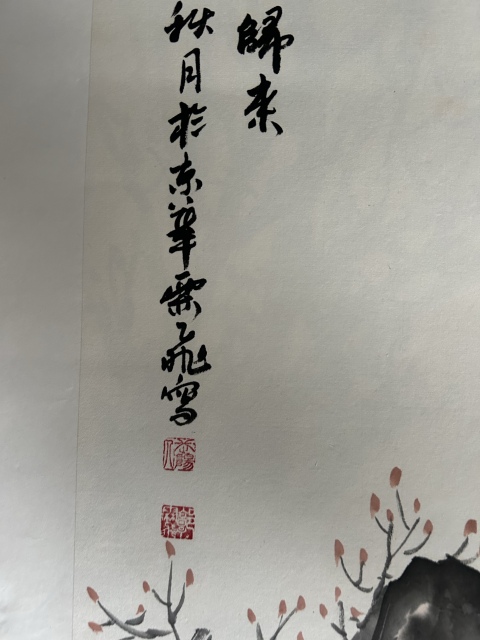 歸來
秋月於京華霖飛寫